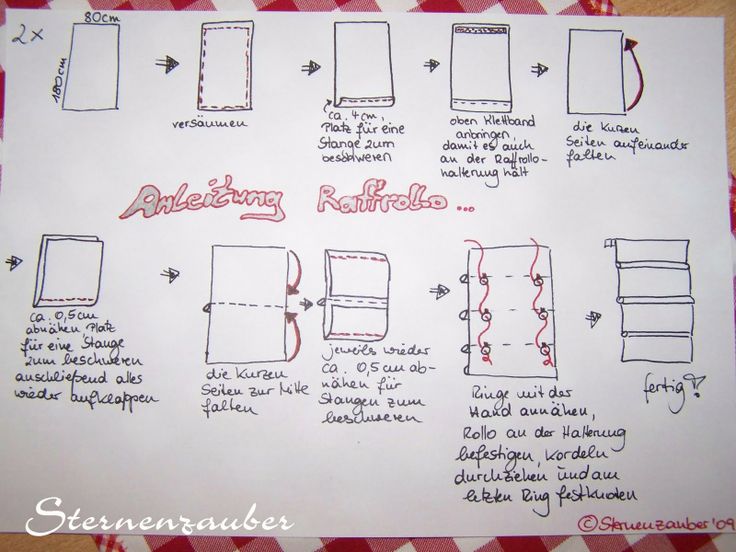 2x
80cm
180cm
versäumen
ca. 4cm,
Platz für eine
Stange zum
beschweren
oben Klettband
anbringen,
damit es auch
an der Raffrollo-
halterung hält
die kurzen
Seiten aufeinander
falten
Anleitung Raffrollo...
ca. 0,5cm
abnähen, Platz
für eine Stange
zum beschweren
anschließend alles
wieder aufklappen
die kurzen
Seiten zur Mitte
falten
jeweils wieder
ca. 0,5cm ab-
nähen für
Stangen zum
beschweren
Ringe mit der
Hand annähen,
Rollo an der Halterung
befestigen, Kordeln
durchziehen und am
letzten Ring festknoten
fertig!
Sternenzauber
©Sternenzauber '09